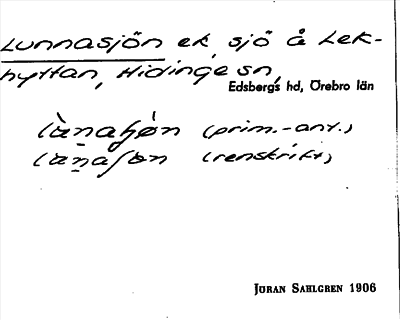 Lunnasjön ek, sjö å Lek-
hyttan, Hidinge sn,
Edsbergs hd, Örebro län
(prim.-ant.)
(renskrift)
JÖRAN SAHLGREN 1906